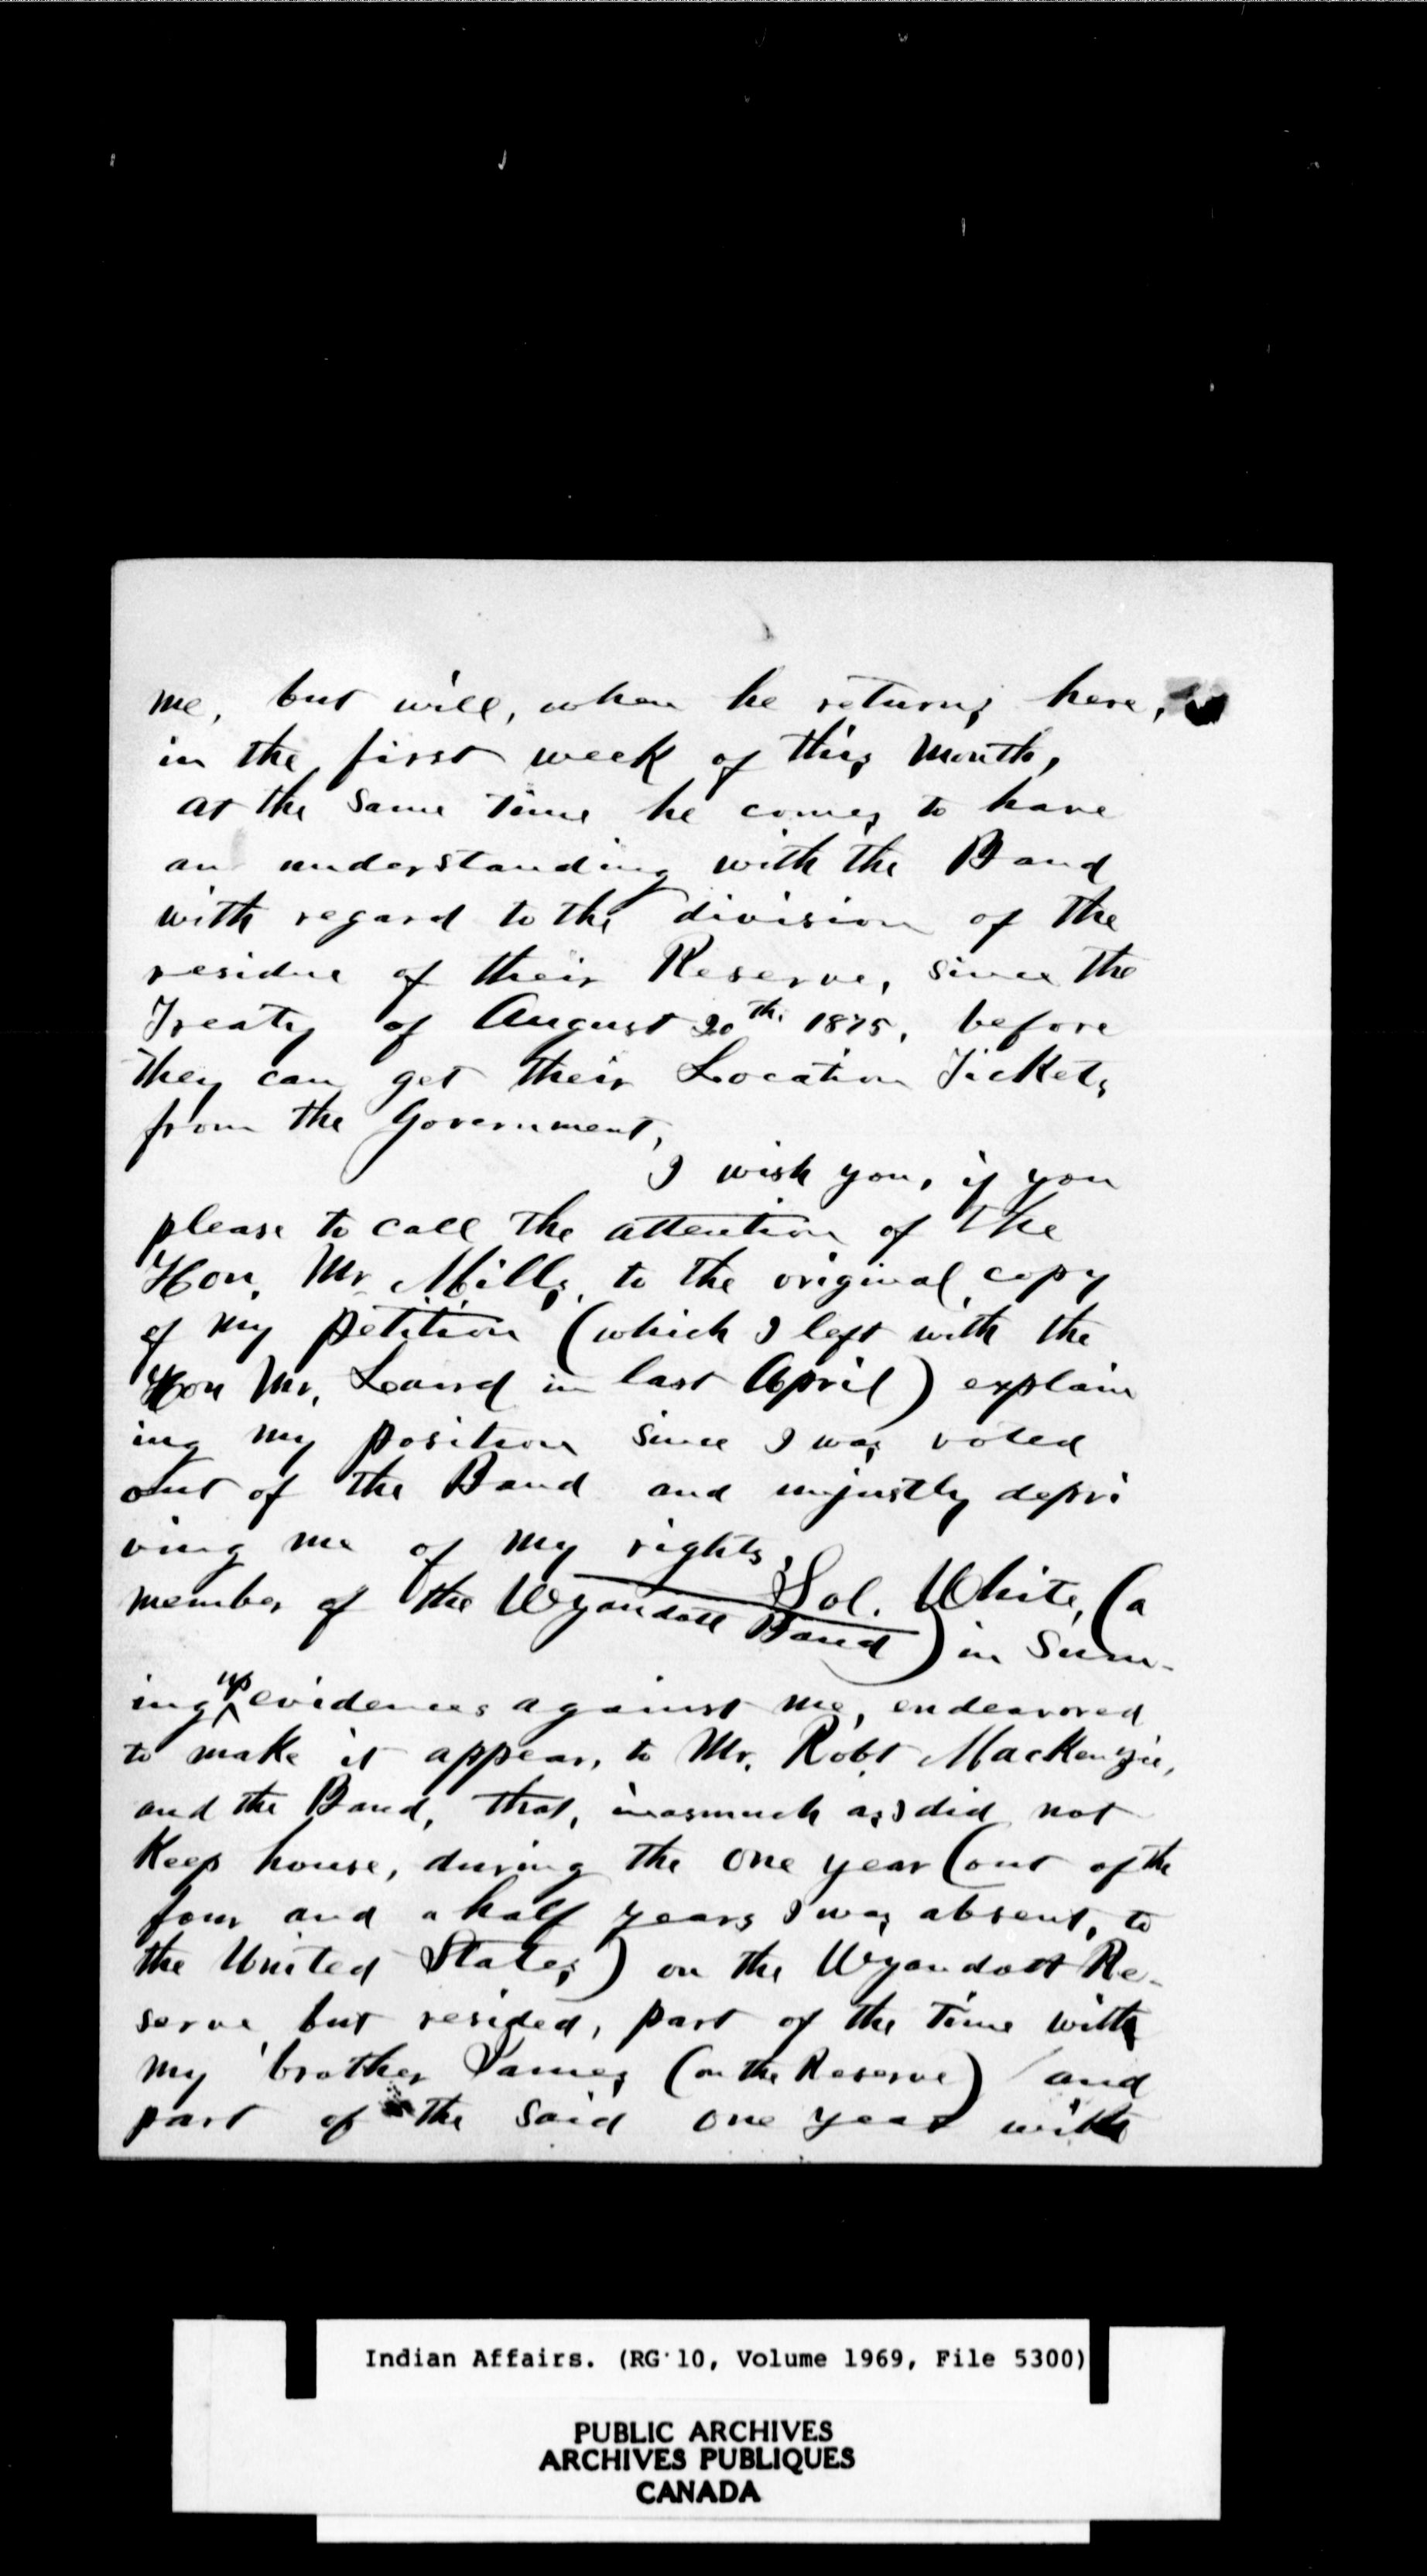 me, but will, when he returns here,
in the first week of this month,
at the same time he comes to have
an understanding with the Band
with regard to the division of the
residue of their Reserve, since the
Treaty of August 20th. 1875, before
they can get their Location Tickets
from the Government,
I wish you, if you
please to call the attention of the
Hon. Mr Mills, to the original copy
of my petition (which I left with the
Hon Mr. Laird in last April) explain
ing my position since I was voted
out of the Band and unjustly depri
ving me of my rights,
Sol. White, (a
member of the Wyandott Band) in Sum-
ing up evidences against me, endeavored
to make it appear, to Mr. Robt MacKenzie,
and the Band, that, inasmuch as I did not
Keep house, during the one year (out of the
four and a half years I was absent, to
the United States) on the Wyandott Re-
serve but resided, part of the time with
my brother James (on the Reserve) and
part of the said one year with
Indian Affairs. (RG 10, Volume 1969, File 5300)
PUBLIC ARCHIVES
ARCHIVES PUBLIQUES
CANADA